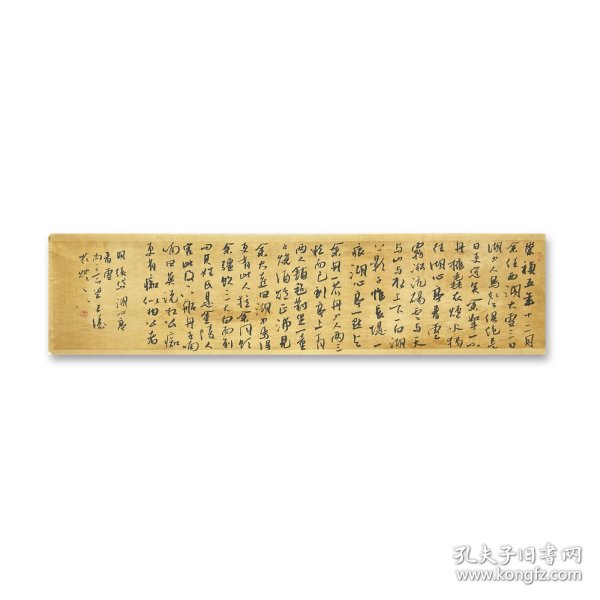 崇禎五年十二月
余住西湖大雪三日
湖中人鳥声俱绝是
日更定矣余拏一小
舟擁毳衣爐火獨
往湖心亭看雪
霧凇沆碭云与天
与山与水上下一白湖
上影子惟長堤一
痕湖心亭一點与
余舟一芥舟中人两三
粒而已到亭上有
两人鋪氈對坐一童
子燒酒爐正沸見
余大喜曰湖中焉得
更有此人拉余同飲
余强飲三大白而别
问其姓氏是金陵人
客此及下船舟子喃
喃曰莫说相公痴
更有痴似相公者
明張岱湖心亭
看雪
孔夫子旧书网
www.kongfz.com